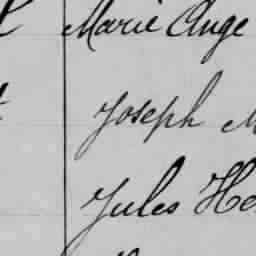 Marie Ange
Joseph
Jules